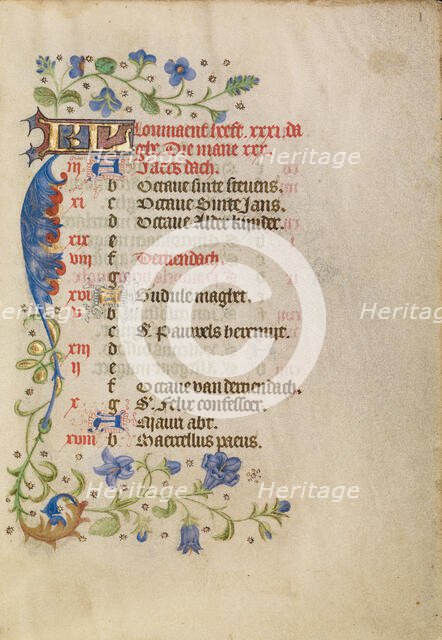 1
KL Loumaent heeft. xxxi. da
ghe. Die mane xxx.
iij A Jaers dach.
b Octaue sinte steuens.
xi c Octaue Sinte Jans.
d Octaue Alder kinder.
xix e
viij f Dertiendach.
g
xvi A Gudule maghet.
v b
c S. Pauwels heremijt.
xiij d
ij e
f Octaue van dertiendach.
x g S. Felix confessoer.
A Mauri abt.
xviij b Marcellus paeus.
Heritage
Heritage
Heritage
Heritage
Heritage
Heritage